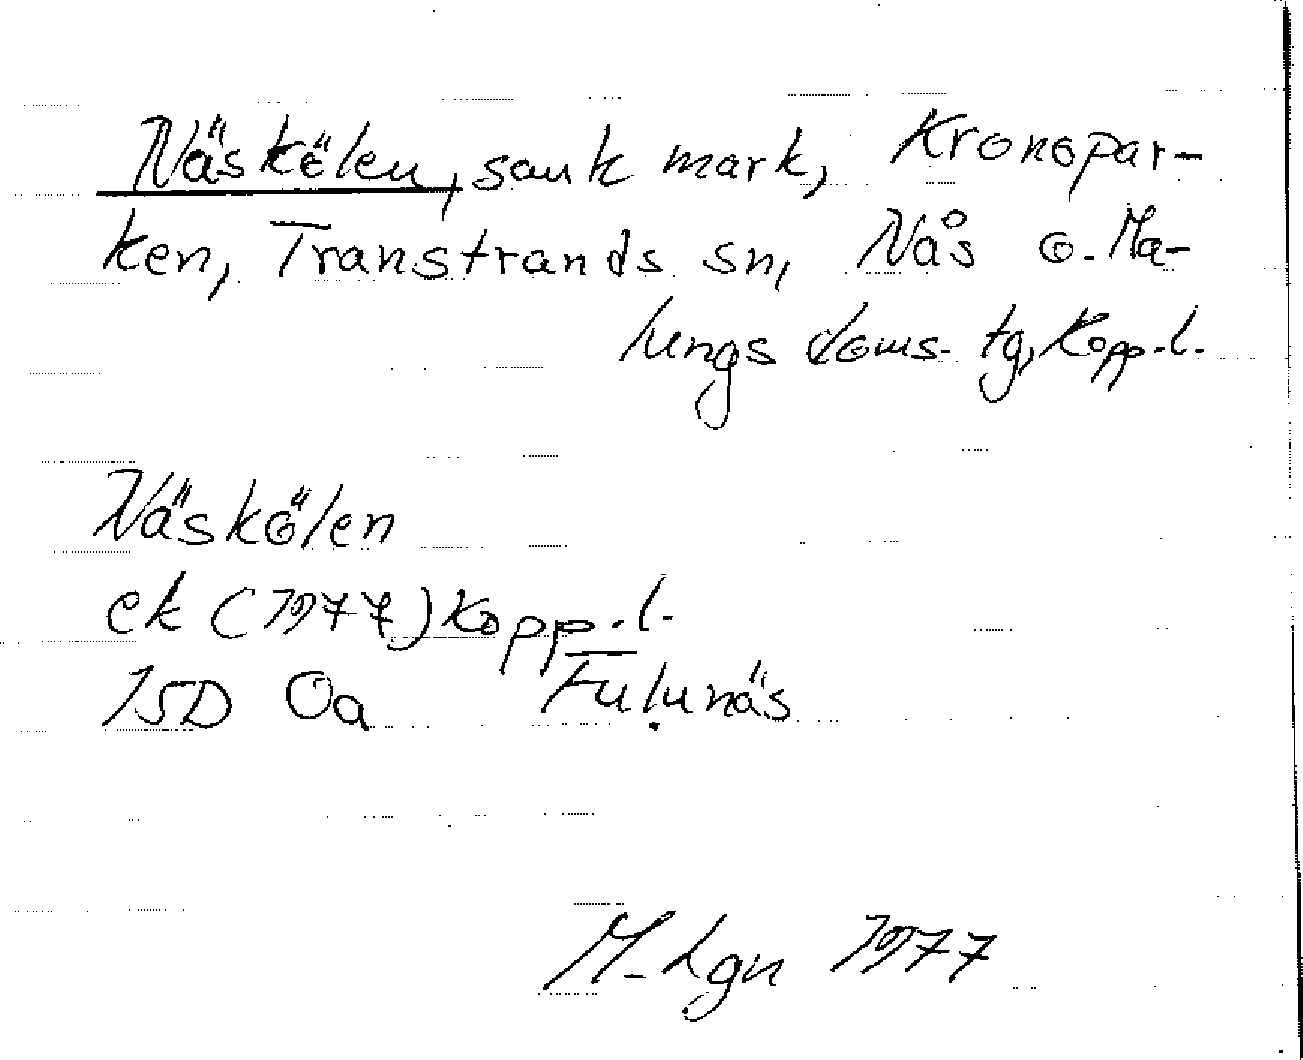 Näskölen, sank mark, Kronopar-
ken, Transtrands sn, Nås o. Ma-
lungs doms. tg, Kopp. l.
Näskölen
ek (1977) Kopp. l.
15D Oa Fulunäs
M. Lgn 1977